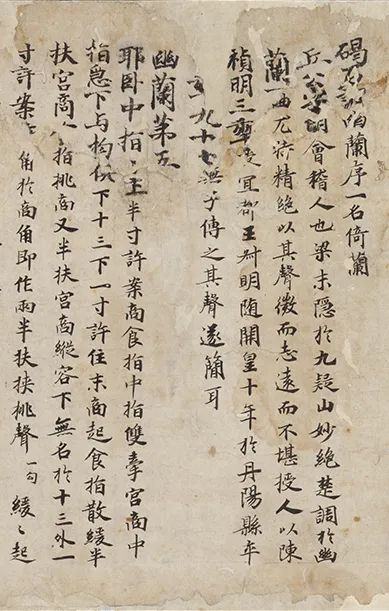 碣石調幽蘭序一名倚蘭
丘公字明會稽人也梁末隱於九疑山妙絕楚調於幽
蘭一曲尤特精絕以其聲微而志遠而不堪授人以陳
禎明三年授宜都王叔明隨開皇十年於丹陽縣卒
年九十七無子傳之其聲遂簡耳
幽蘭第五
耶臥中指上半寸許案商食指中指雙牽宮商中
指急下与拘俱下十三下一寸許住末商起食指散緩半
扶宮商食指挑商又半扶宮商縱容下無名於十三外一
寸許案商角於商角即作兩半扶挾挑聲一句緩〻起